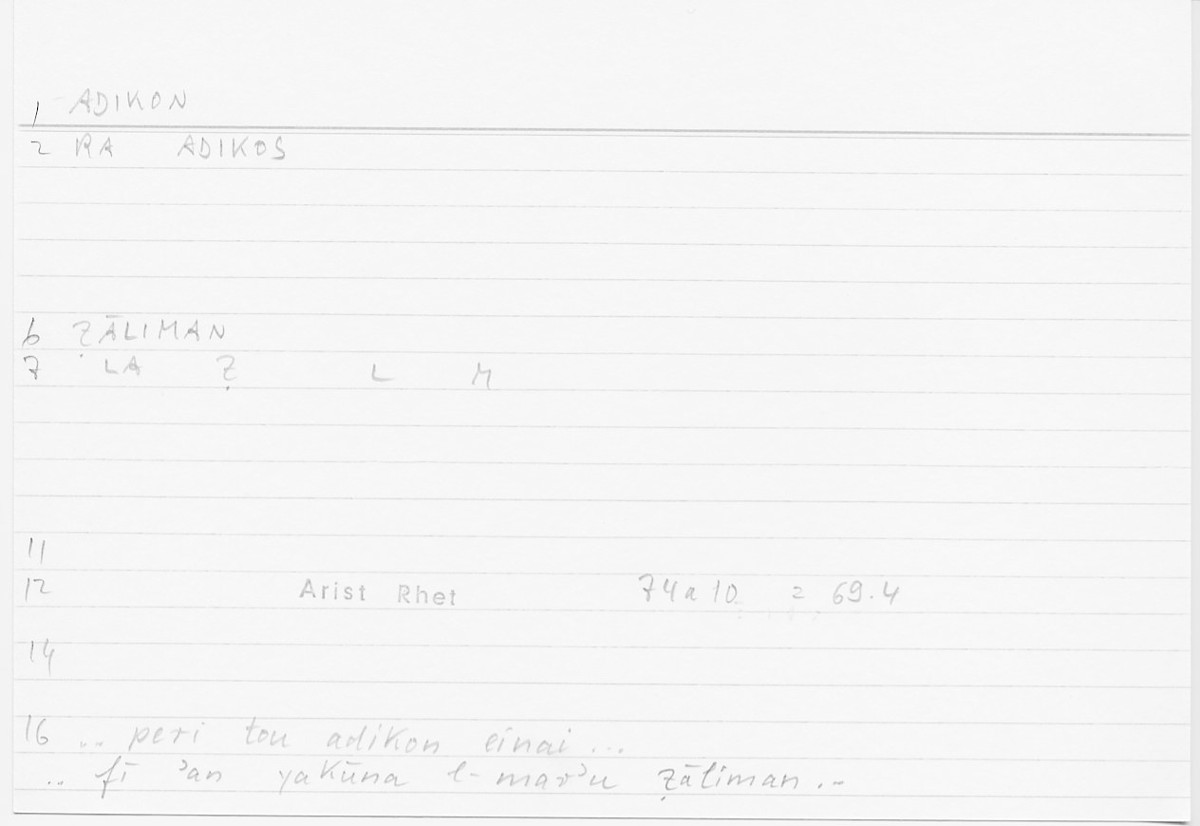 1 ADIKON
2 RA ADIKOS
6 ẒĀLIMAN
7 LA Ẓ L M
11
12 Arist Rhet 74a10 = 69.4
14
16 .. peri tou adikon einai ...
.. fī ʾan yakūna l-marʾu ẓāliman ..